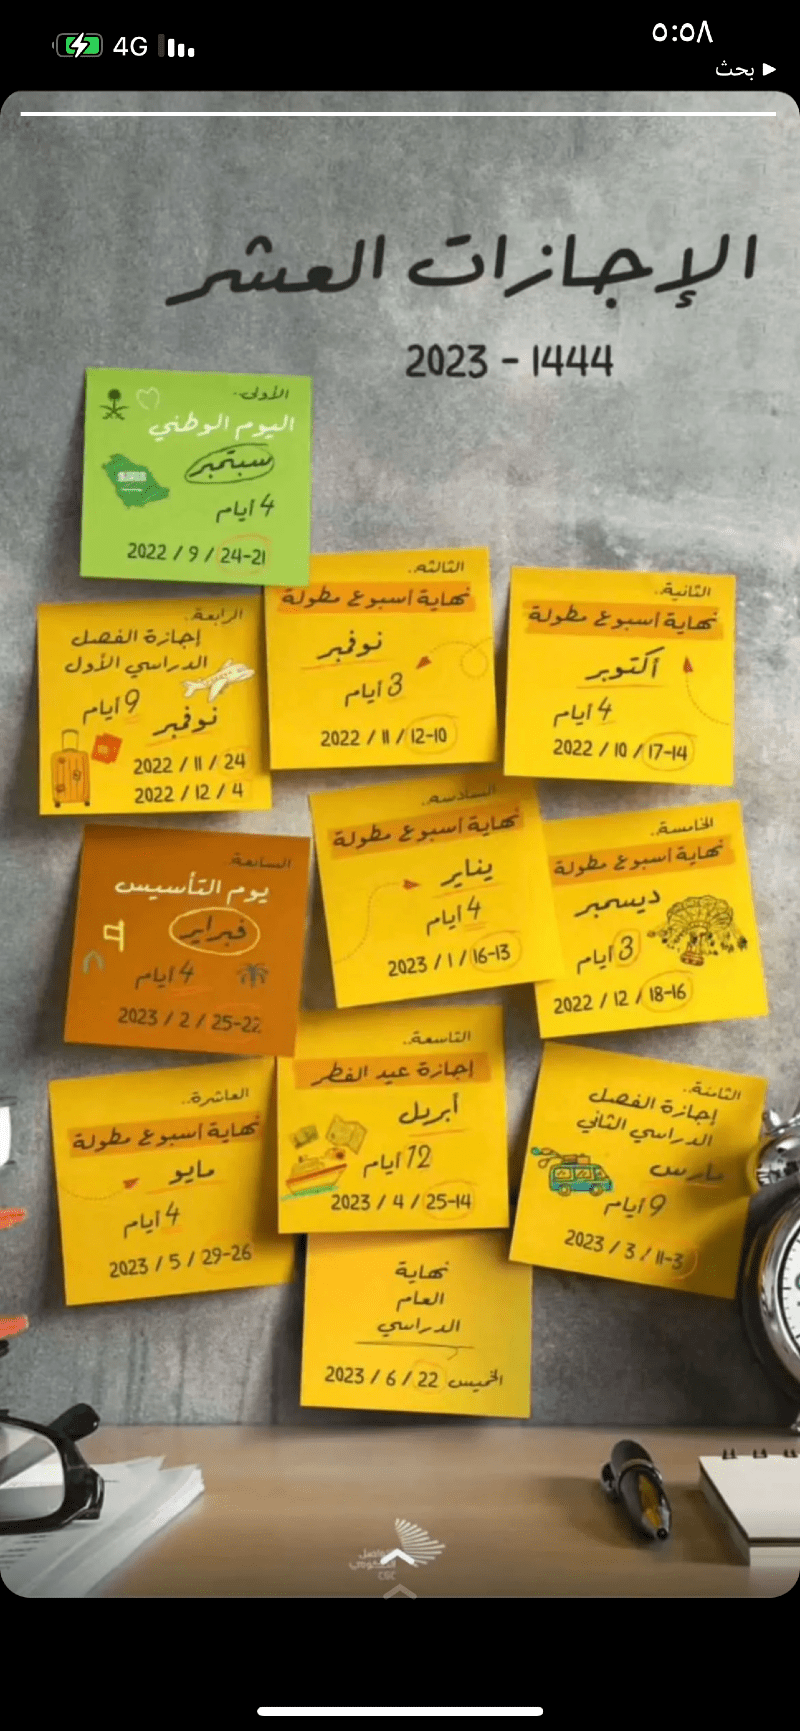 4G
٥:٥٨
بحث ◄
الإجازات العشر
2023 - 1444
الأولى..
اليوم الوطني
سبتمبر
4 أيام
2022 / 9 / 24-21
الثانية..
نهاية أسبوع مطولة
أكتوبر
4 أيام
2022 / 10 / 17-14
الثالثه..
نهاية أسبوع مطولة
نوفمبر
3 أيام
2022 / 11 / 12-10
الرابعة..
إجازة الفصل
الدراسي الأول
9 أيام
نوفمبر
2022 / 11 / 24
2022 / 12 / 4
الخامسة..
نهاية أسبوع مطولة
ديسمبر
3 أيام
2022 / 12 / 18-16
السادسه..
نهاية أسبوع مطولة
يناير
4 أيام
2023 / 1 / 16-13
السابعة..
يوم التأسيس
فبراير
4 أيام
2023 / 2 / 25-22
الثامنة..
إجازة الفصل
الدراسي الثاني
مارس
9 أيام
2023 / 3 / 11-3
التاسعة..
إجازة عيد الفطر
أبريل
12 أيام
2023 / 4 / 25-14
العاشرة..
نهاية أسبوع مطولة
مايو
4 أيام
2023 / 5 / 29-26
نهاية
العام
الدراسي
الخميس 22 / 6 / 2023
CGC